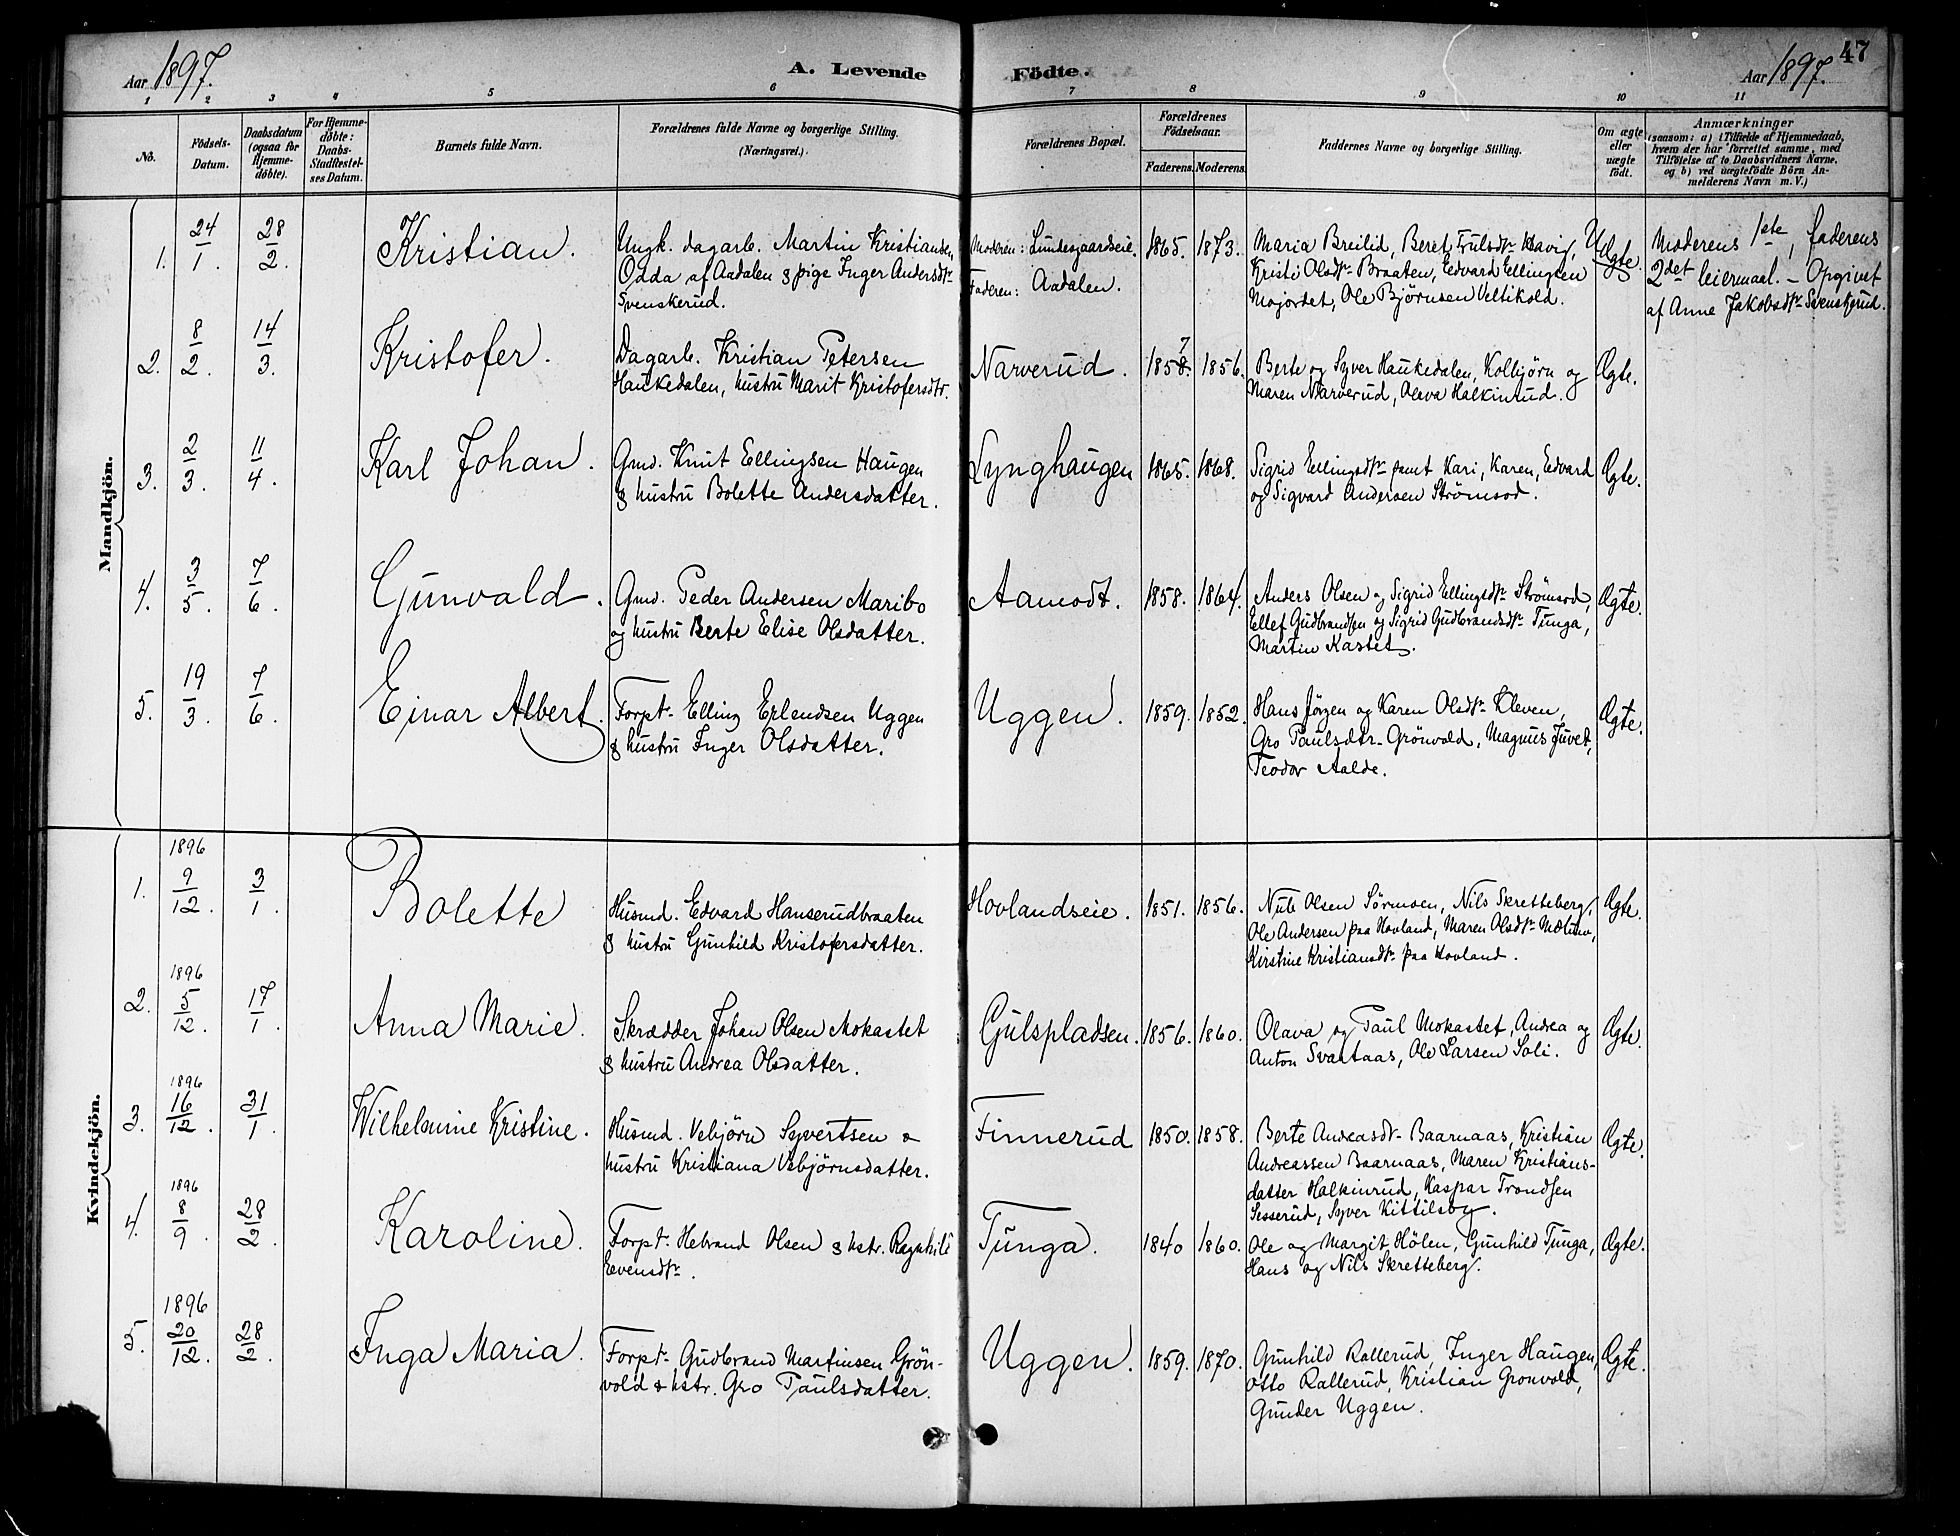 Aar 1897. A. Levende Födte. Aar 1897. 47
1 2 3 4 5 6 7 8 9 10 11
No. Födsels-Datum. Daabsdatum (ogsaa for Hjemme-döbte). For Hjemme-döbte: Daabs-Stadfæstel-ses Datum. Barnets fulde Navn. Forældrenes fulde Navne og borgerlige Stilling. (Næringsvei.) Forældrenes Bopæl. Forældrenes Födselsaar. Faderens. Moderens. Faddernes Navne og borgerlige Stilling. Om ægte eller uægte födt.
Anmærkninger
(saasom: a) i Tilfælde af Hjemmedaab,
hvem der har forrettet samme, med
Tilföielse af to Daabsvidners Navne,
og b) ved uægtefödte Börn An-
melderens Navn m. V.)
Mandkjön.
1. 24/1. 28/2. Kristian.
Ungk. dagarb. Martin Kristiansen,
Odda af Aadalen & pige Inger Andersdtr
Svenskerud.
Moderen: Lundesgaardseie.
Faderen: Aadalen.
1865. 1873.
Maria Breilid, Beret Trulsdtr Havig,
Kristi Olsdtr Braaten, Edvard Ellingsen
Mojordet, Ole Björnsen Veltikold.
Uægte.
Moderens 1ste, faderens
2det leiermaal. - Opgivet
af Anne Jakobsdtr Svenskerud.
2. 8/2. 14/3. Kristofer.
Dagarb. Kristian Petersen
Haukedalen, hustru Marit Kristofersdtr.
Narverud. 1858. 7 1856.
Berte og Syver Haukedalen, Kolbjörn og
Maren Narverud, Olava Halkinrud.
Ægte.
3. 2/3. 11/4. Karl Johan.
Gmd. Knut Ellingsen Haugen
& hustru Bolette Andersdatter.
Lynghaugen 1865. 1868.
Sigrid Ellingsdtr samt Kari, Karen, Edvard
og Sigvard Andersen Strömsod.
Ægte.
4. 3/5. 7/6. Gunvald.
Gmd. Peder Andersen Maribo
og hustru Berte Elise Olsdatter.
Aamodt. 1858. 1864.
Anders Olsen og Sigrid Ellingsdtr Strömsod,
Ellef Gudbrandsen og Sigrid Gudbrandsdtr Tunga,
Martin Kastet.
Ægte.
5. 19/3. 7/6. Einar Albert.
Forptr Elling Erlendsen Uggen
& hustru Inger Olsdatter.
Uggen. 1859. 1852.
Hans Jörgen og Karen Olsdtr Kleven,
Gro Paulsdtr Grönvold, Magnus Juvet,
Teodor Aalde.
Ægte.
Kvindekjön.
1. 1896 9/12. 3/1. Bolette
Husmd. Edvard Hanserudbraaten
& hustru Gunhild Kristofersdatter.
Hovlandseie. 1851. 1856.
Nub Olsen Sörmoen, Nils Skretteberg,
Ole Andersen paa Hovland, Maren Olsdtr Mælum,
Kirstine Kristiansdtr paa Hovland.
Ægte.
2. 1896 5/12. 17/1. Anna Marie.
Skrædder Johan Olsen Mokastet
& hustru Andrea Olsdatter.
Gulspladsen. 1856. 1860.
Olava og Paul Mokastet, Andrea og
Anton Svartaas, Ole Larsen Soli.
Ægte.
3. 1896 16/12. 31/1. Wilhelmine Kristine.
Husmd. Vebjörn Syvertsen &
hustru Kristiana Vebjörnsdatter.
Finnerud 1850. 1858.
Berte Andreasdtr Baarnaas, Kristian
Andreassen Baarnaas, Maren Kristians-
datter Halkinrud, Kaspar Trondsen
Sesserud, Syver Kittilsby.
Ægte.
4. 1896 8/9. 28/2. Karoline.
Forptr Hebrand Olsen & hstr. Ragnhild
Evensdtr.
Tunga. 1840 1860.
Ole og Margit Hölen, Gunhild Tunga,
Hans og Nils Skretteberg.
Ægte.
5. 1896 20/12. 28/2. Inga Maria.
Forptr Gudbrand Martinsen Grön-
vold & hstr. Gro Paulsdatter.
Uggen. 1859. 1870.
Gunhild Rallerud, Inger Haugen,
Otto Rallerud, Kristian Gronvold,
Gunder Uggen.
Ægte.